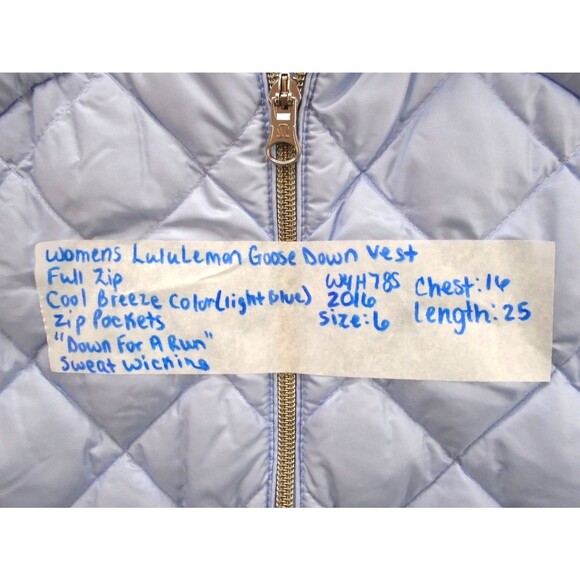 womens LuluLemon Goose Down Vest
Full Zip
Cool Breeze Color(light Blue)
Zip Pockets
"Down For A Run"
Sweat Wicking
W4H78S
2016
Size: 6
Chest: 16
Length: 25